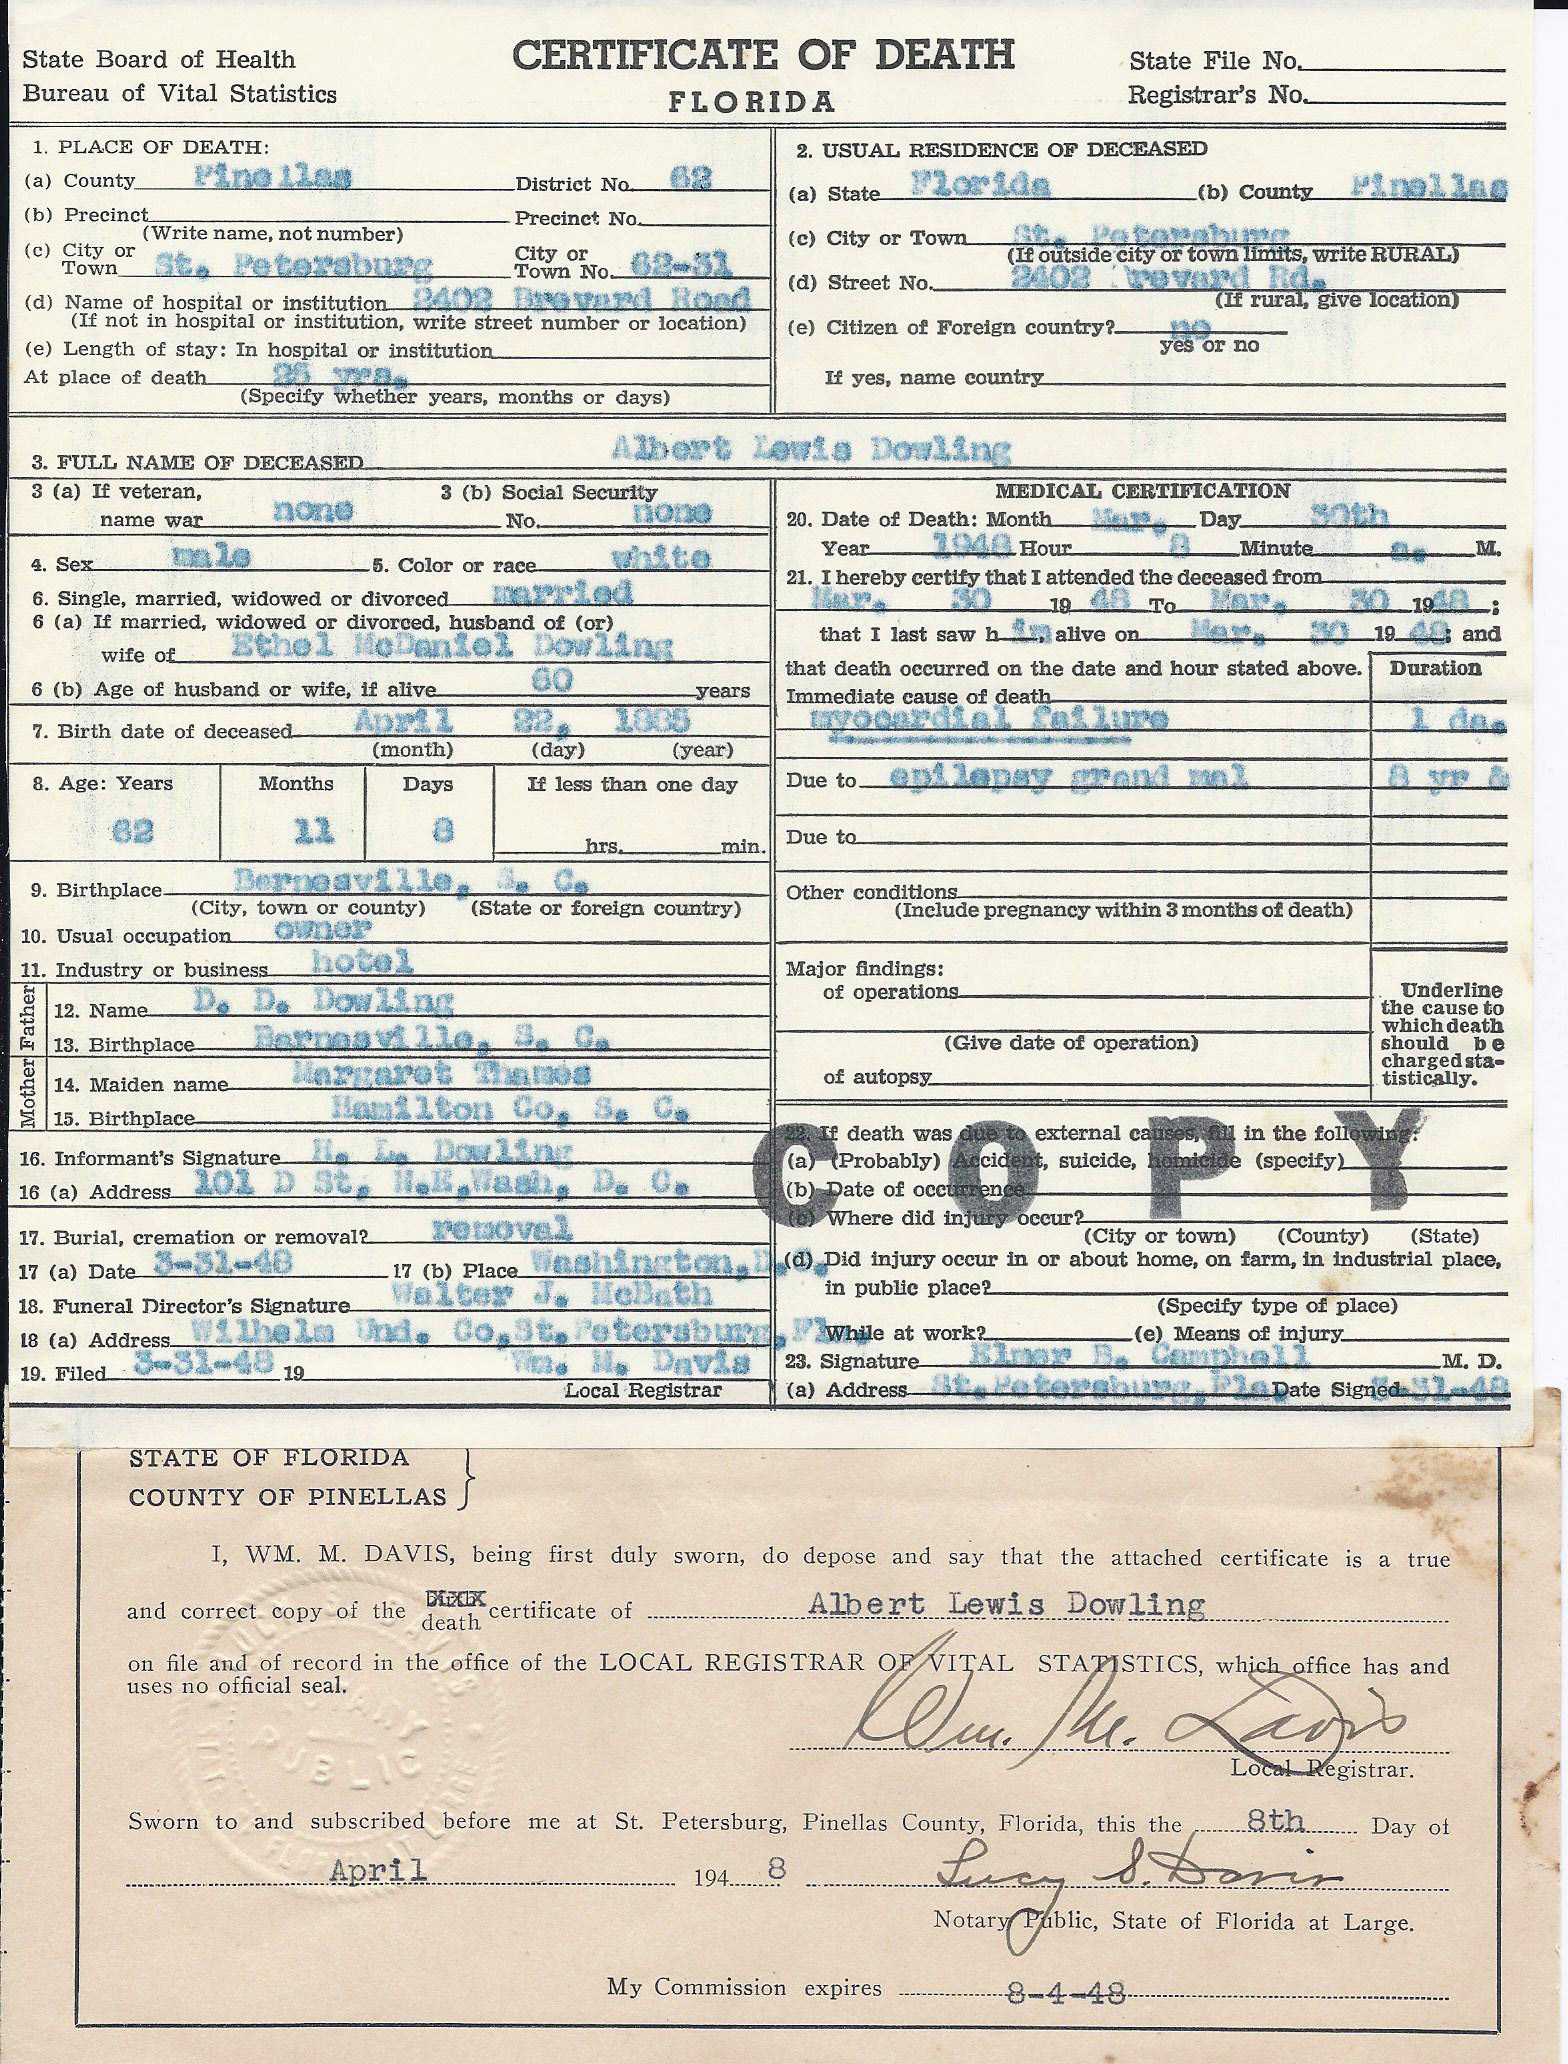 State Board of Health
Bureau of Vital Statistics
CERTIFICATE OF DEATH
FLORIDA
State File No.
Registrar's No.
1. PLACE OF DEATH:
(a) County Pinellas District No. 62
(b) Precinct Precinct No.
(Write name, not number)
(c) City or Town St. Petersburg City or Town No. 62-31
(d) Name of hospital or institution 2402 Brevard Road
(If not in hospital or institution, write street number or location)
(e) Length of stay: In hospital or institution
At place of death 26 yrs.
(Specify whether years, months or days)
2. USUAL RESIDENCE OF DECEASED
(a) State Florida (b) County Pinellas
(c) City or Town St. Petersburg
(If outside city or town limits, write RURAL)
(d) Street No. 2402 Brevard Rd.
(If rural, give location)
(e) Citizen of Foreign country? no
yes or no
If yes, name country
3. FULL NAME OF DECEASED Albert Lewis Dowling
3 (a) If veteran, name war none
3 (b) Social Security No. none
4. Sex male 5. Color or race white
6. Single, married, widowed or divorced married
6 (a) If married, widowed or divorced, husband of (or)
wife of Ethel McDaniel Dowling
6 (b) Age of husband or wife, if alive 60 years
7. Birth date of deceased April 22, 1885
(month) (day) (year)
8. Age: Years Months Days If less than one day
62 11 8 hrs. min.
9. Birthplace Bernesville, S. C.
(City, town or county) (State or foreign country)
10. Usual occupation owner
11. Industry or business hotel
Father
12. Name D. D. Dowling
13. Birthplace Barnesville, S. C.
Mother
14. Maiden name Margaret Thames
15. Birthplace Hamilton Co, S. C.
16. Informant's Signature H. L. Dowling
16 (a) Address 101 D St, N.E,Wash, D. C.
17. Burial, cremation or removal? removal
17 (a) Date 3-31-48 17 (b) Place Washington,D.C.
18. Funeral Director's Signature Walter J. McBath
18 (a) Address Wilhelm Und. Co,St.Petersburg,Fla.
19. Filed 3-31-48 19 Wm. M. Davis
Local Registrar
MEDICAL CERTIFICATION
20. Date of Death: Month Mar. Day 30th
Year 1948 Hour 8 Minute a. M.
21. I hereby certify that I attended the deceased from
Mar. 30 19 48 To Mar. 30 19 48 ;
that I last saw h im alive on Mar. 30 19 48; and
that death occurred on the date and hour stated above. Duration
Immediate cause of death
myocardial failure 1 da.
Due to epilepsy grand mal 8 yr &
Due to
Other conditions
(Include pregnancy within 3 months of death)
Major findings:
of operations
(Give date of operation)
of autopsy
Underline
the cause to
which death
should be
charged sta-
tistically.
COPY
22. If death was due to external causes, fill in the following:
(a) (Probably) Accident, suicide, homicide (specify)
(b) Date of occurrence
(c) Where did injury occur?
(City or town) (County) (State)
(d) Did injury occur in or about home, on farm, in industrial place,
in public place?
(Specify type of place)
While at work? (e) Means of injury
23. Signature Elmer B. Campbell M. D.
(a) Address St.Petersburg,Fla. Date Signed 3-31-48
STATE OF FLORIDA
COUNTY OF PINELLAS
I, WM. M. DAVIS, being first duly sworn, do depose and say that the attached certificate is a true
and correct copy of the birth death certificate of Albert Lewis Dowling
on file and of record in the office of the LOCAL REGISTRAR OF VITAL STATISTICS, which office has and
uses no official seal.
Wm. M. Davis
Local Registrar.
NOTARY PUBLIC
Sworn to and subscribed before me at St. Petersburg, Pinellas County, Florida, this the 8th Day of
April 194 8 Lucy S. Davis
Notary Public, State of Florida at Large.
My Commission expires 8-4-48